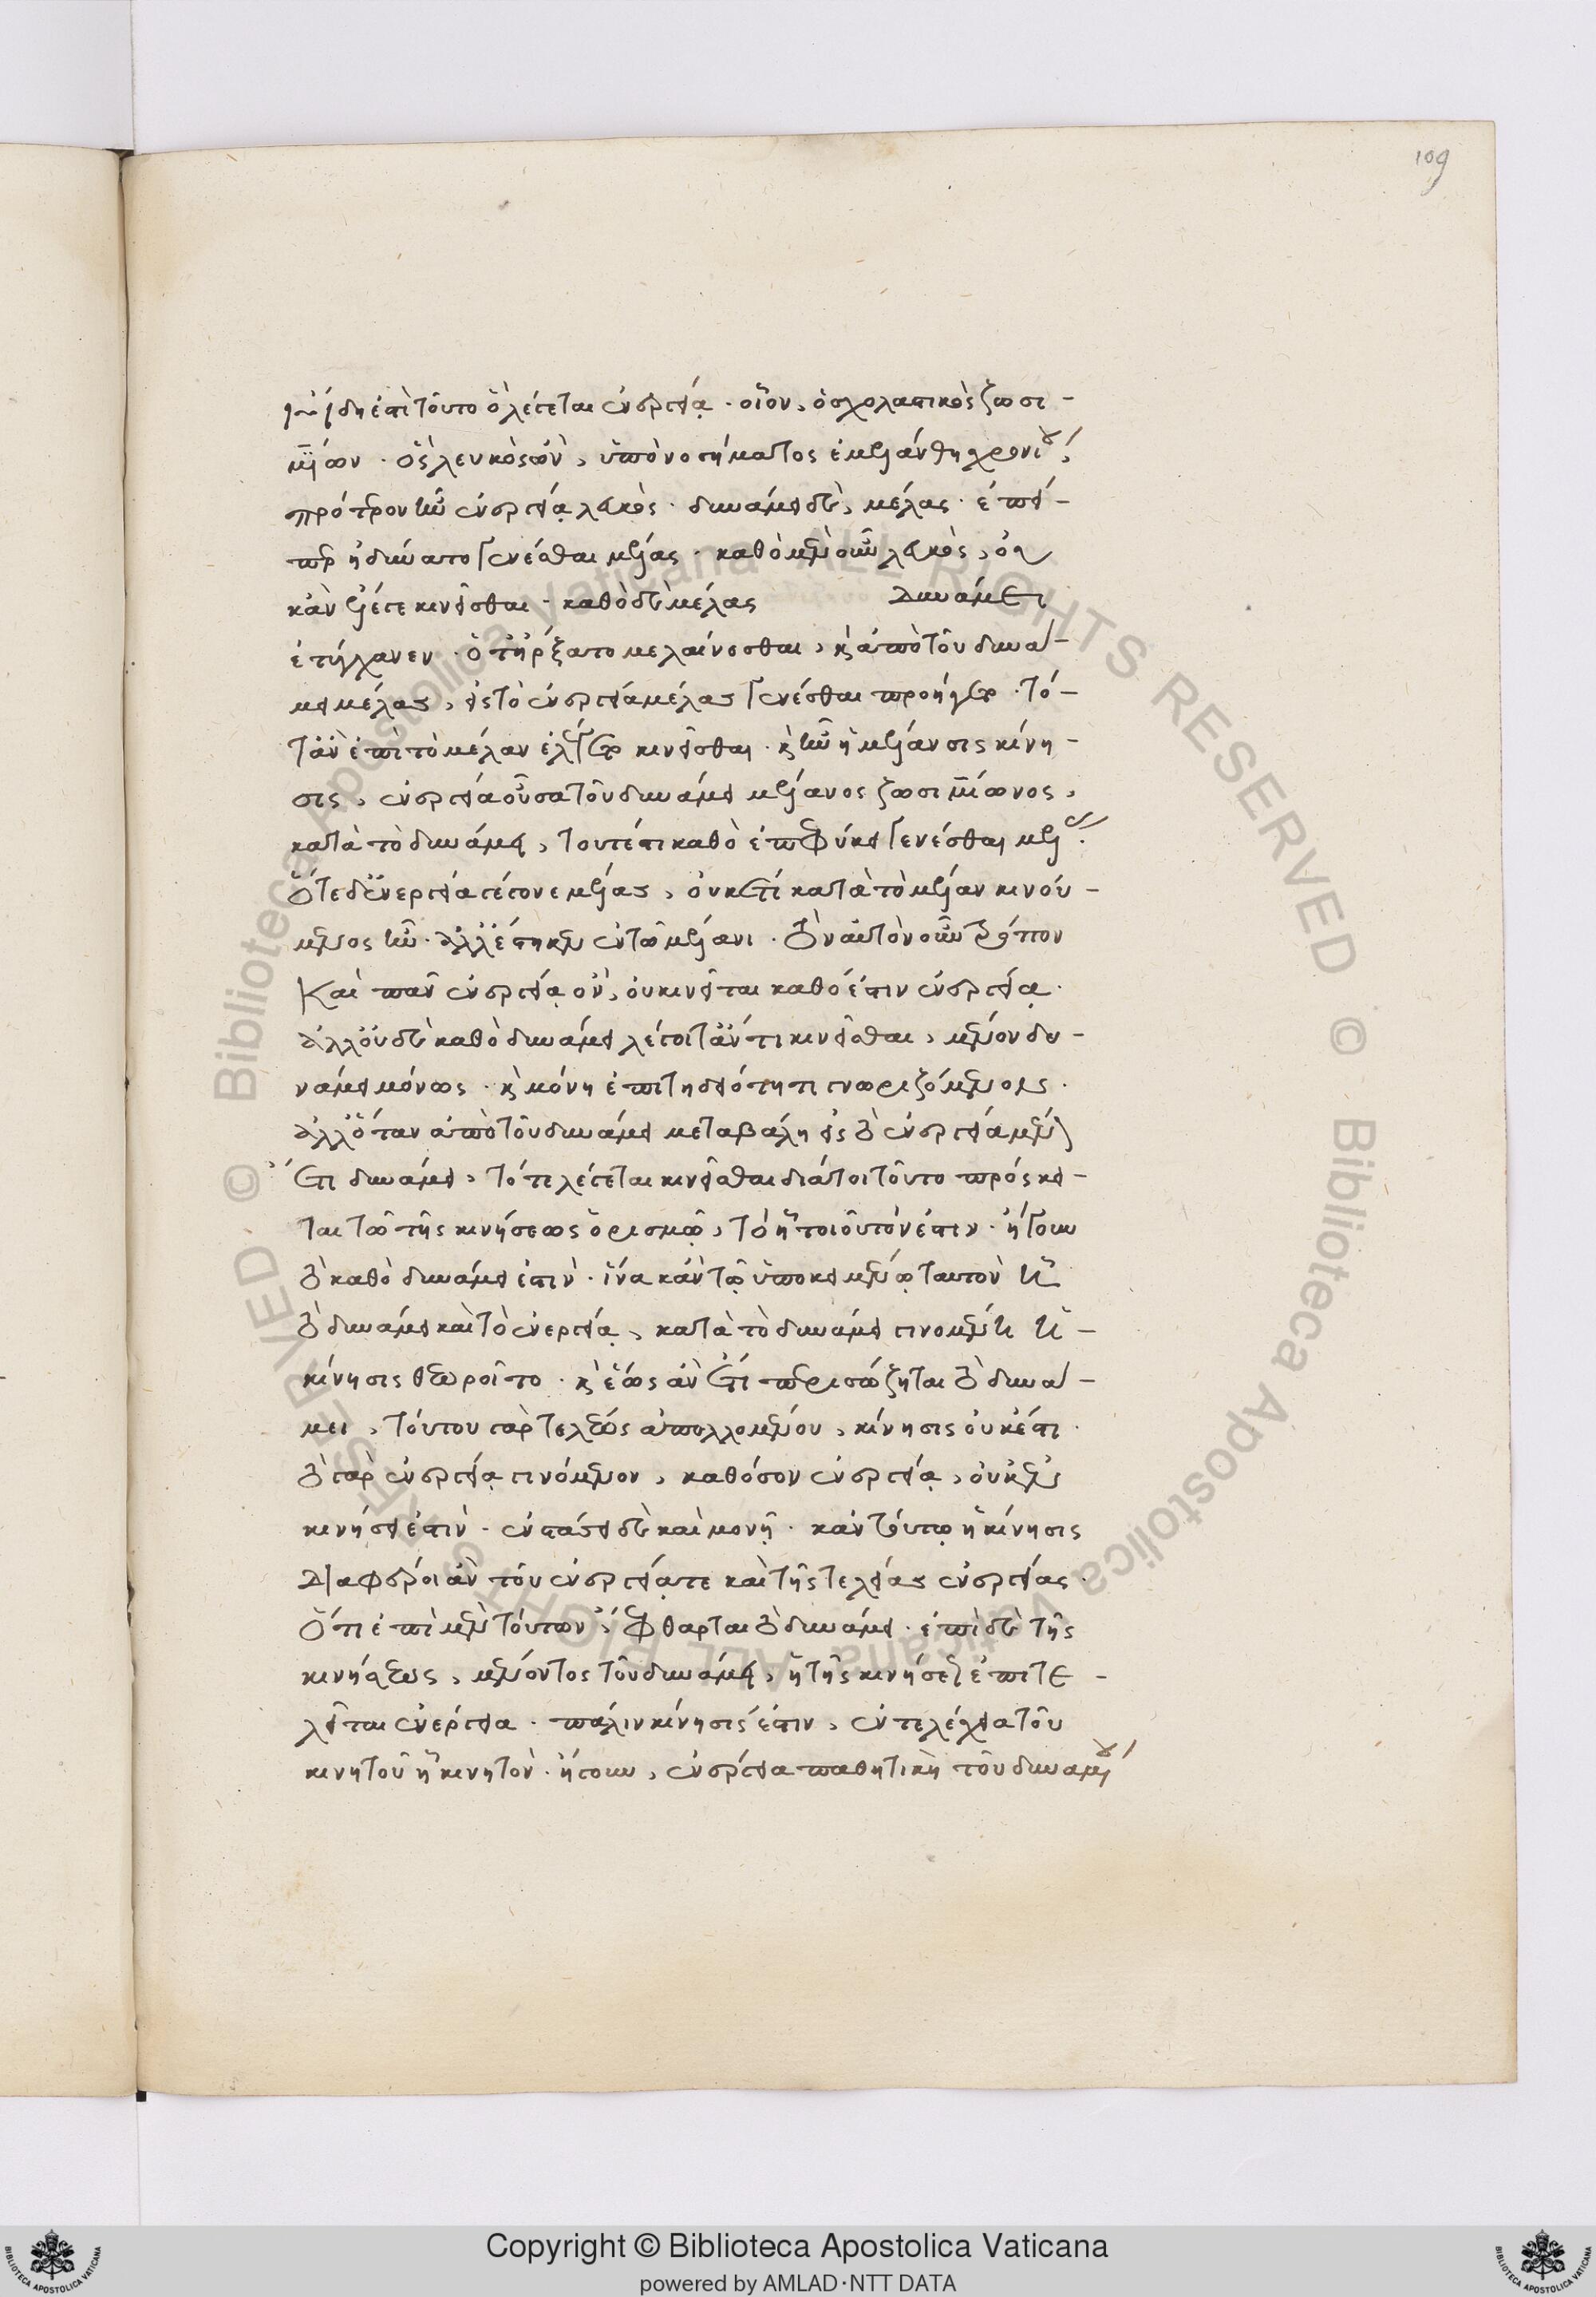 109
ἤδη ἐπὶ τοῦτο ὃ λέγεται ἐνεργείᾳ · οἷον, ὁ σχολαστικὸς ζωσι-
μίων · ὃς λευκὸς ὢν, ὑπὸ νοσήματος ἐμελάνθη χρονίου,
πρότερον ἦν ἐνεργείᾳ λευκὸς · δυνάμει δὲ, μέλας · ἐπεί-
περ ἠδύνατο γενέσθαι μέλας · καθὸ μὲν οὖν λευκὸς,
κἂν ἔλεγε κινεῖσθαι · καθὸ δὲ μέλας δυνάμει
ἐτύγχανεν · ὅτ' ἤρξατο μελαίνεσθαι, καὶ ἀπὸ τοῦ δυνά-
μει μέλας, εἰς τὸ ἐνεργείᾳ μέλας γενέσθαι προήγετο · τό-
τ' ἂν ἐπὶ τὸ μέλαν ἐλέγετο κινεῖσθαι · καὶ ἦν ἡ μέλανσις κίνη-
σις, ἐνέργεια οὖσα τοῦ δυνάμει μέλανος ζωσιμίωνος,
κατὰ τὸ δυνάμει, τουτέστι καθὸ ἐπεφύκει γενέσθαι μέλας.
ὅτε δ' ἐνεργείᾳ γέγονε μέλας, οὐκ ἔτι κατὰ τὸ μέλαν κινού-
μενος ἦν · ἀλλ' ἕστηκεν ἐν τῷ μέλανι · τὸν αὐτὸν οὖν τρόπον
καὶ πᾶν ἐνεργείᾳ ὂν, οὐ κινεῖται καθό ἐστιν ἐνεργείᾳ.
ἀλλ' οὐδὲ καθὸ δυνάμει λέγοιτ' ἄν τι κινεῖσθαι, μένον δυ-
νάμει μόνως · καὶ μόνῃ ἐπιτηδειότητι γνωριζόμενον.
ἀλλ' ὅταν ἀπὸ τοῦ δυνάμει μεταβάλῃ εἰς τὸ ἐνεργείᾳ μένον
ἔτι δυνάμει, τότε λέγεται κινεῖσθαι διά τοι τοῦτο πρόσκει-
ται τῷ τῆς κινήσεως ὁρισμῷ, τὸ ᾗ τοιοῦτόν ἐστιν · ἤγουν
τὸ καθὸ δυνάμει ἐστὶν · ἵνα κἂν τῷ ὑποκειμένῳ ταυτὸν ᾖ
τὸ δυνάμει καὶ τὸ ἐνεργείᾳ, κατὰ τὸ δυνάμει γινομένη ἡ
κίνησις θεωροῖτο · καὶ ἕως ἂν ἔτι περισώζηται τὸ δυνά-
μει, τούτου γὰρ τελέως ἀπολλομένου, κίνησις οὐκέτι.
τὸ γὰρ ἐνεργείᾳ γινόμενον, καθόσον ἐνεργείᾳ, οὐκ ἐν
κινήσει ἐστὶν · ἐν στάσει δὲ καὶ μονῇ · κἂν τούτῳ ἡ κίνησις
διαφέροι ἂν τοῦ ἐνεργείᾳ τε καὶ τῆς τελείας ἐνεργείας.
ὅτι ἐπὶ μὲν τούτων, ἔφθαρται τὸ δυνάμει · ἐπὶ δὲ τῆς
κινήσεως, μένοντος τοῦ δυνάμει, ἡ τῆς κινήσεως ἐπιτε-
λεῖται ἐνέργεια · πάλιν κίνησίς ἐστιν, ἐντελέχεια τοῦ
κινητοῦ ᾗ κινητὸν · ἤγουν, ἐνέργεια παθητικὴ τοῦ δυναμένου
Copyright © Biblioteca Apostolica Vaticana
powered by AMLAD·NTT DATA